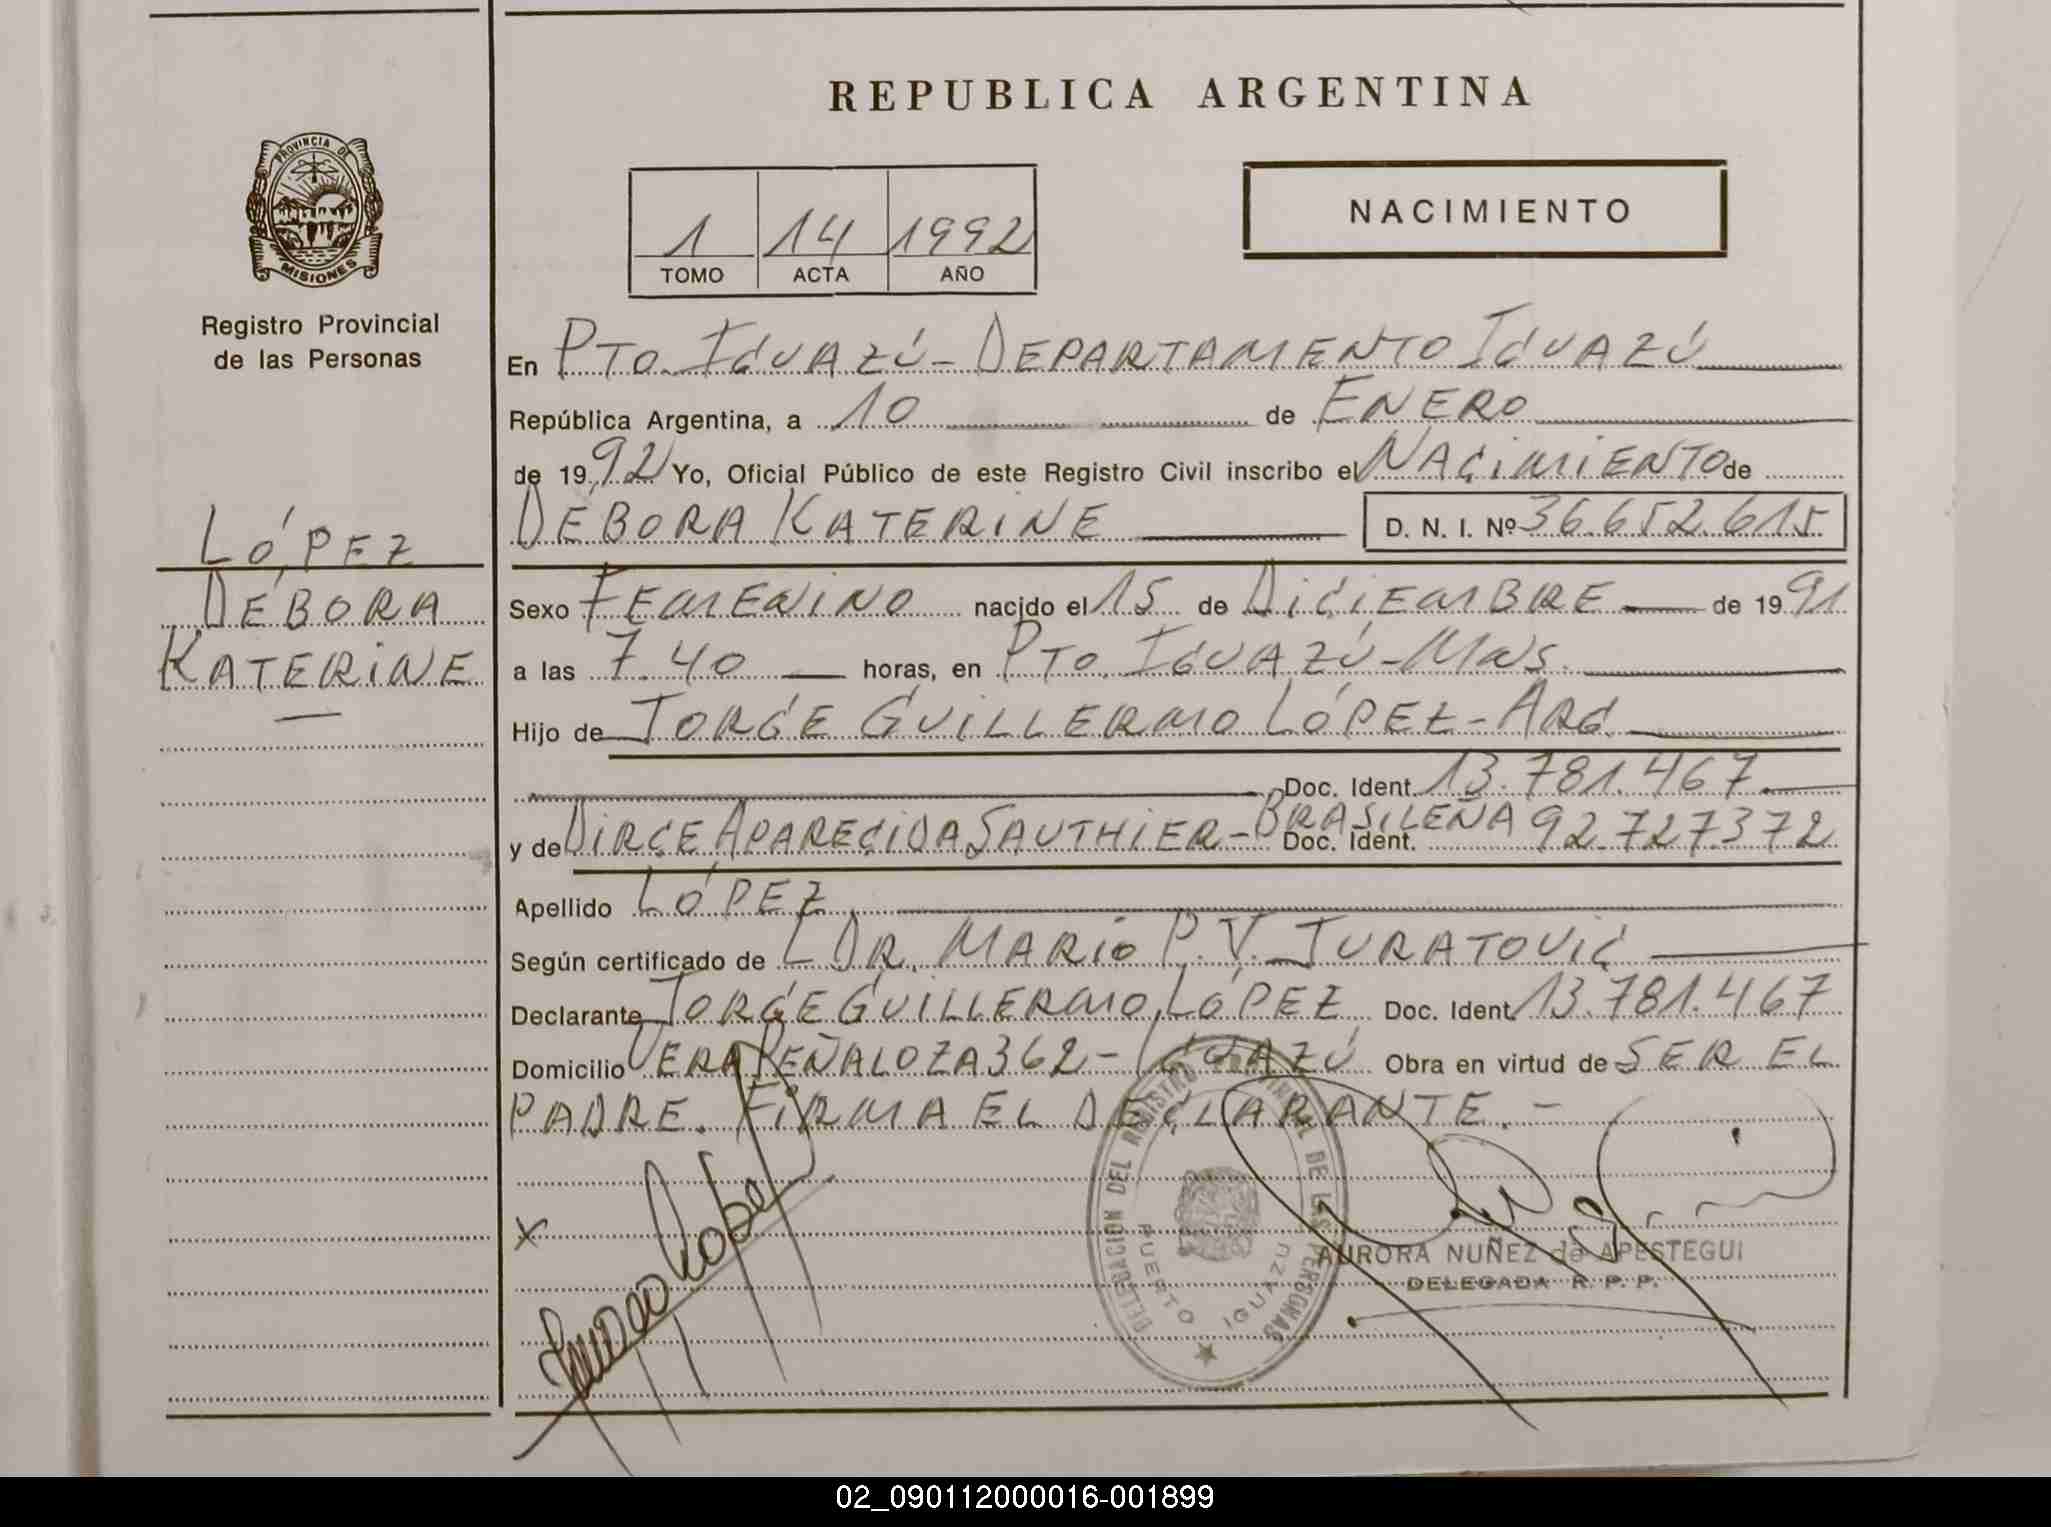 REPUBLICA ARGENTINA
PROVINCIA DE
MISIONES
Registro Provincial
de las Personas
1 14 1992
TOMO ACTA AÑO
NACIMIENTO
En PTO. IGUAZÚ - DEPARTAMENTO IGUAZÚ
República Argentina, a 10 de ENERO
de 1992 Yo, Oficial Público de este Registro Civil inscribo el NACIMIENTO de
DÉBORA KATERINE D. N. I. Nº 36.652.615
LÓPEZ
DÉBORA
KATERINE
Sexo FEMENINO nacido el 15 de DICIEMBRE de 1991
a las 7.40 horas, en PTO. IGUAZÚ - MNS.
Hijo de JORGE GUILLERMO LÓPEZ - ARG.
Doc. Ident. 13.781.467
y de DIRCE APARECIDA SAUTHIER - BRASILEÑA Doc. Ident. 92.727.372
Apellido LÓPEZ
Según certificado de L DR. MARIO P. V. JURATOVIC
Declarante JORGE GUILLERMO LÓPEZ Doc. Ident. 13.781.467
Domicilio VERA PEÑALOZA 362 - IGUAZÚ Obra en virtud de SER EL
PADRE. FIRMA EL DECLARANTE. -
X
DELEGACION DEL REGISTRO PROVINCIAL DE LAS PERSONAS
PUERTO IGUAZU
AURORA NUÑEZ de APESTEGUI
DELEGADA R. P. P.
02_090112000016-001899